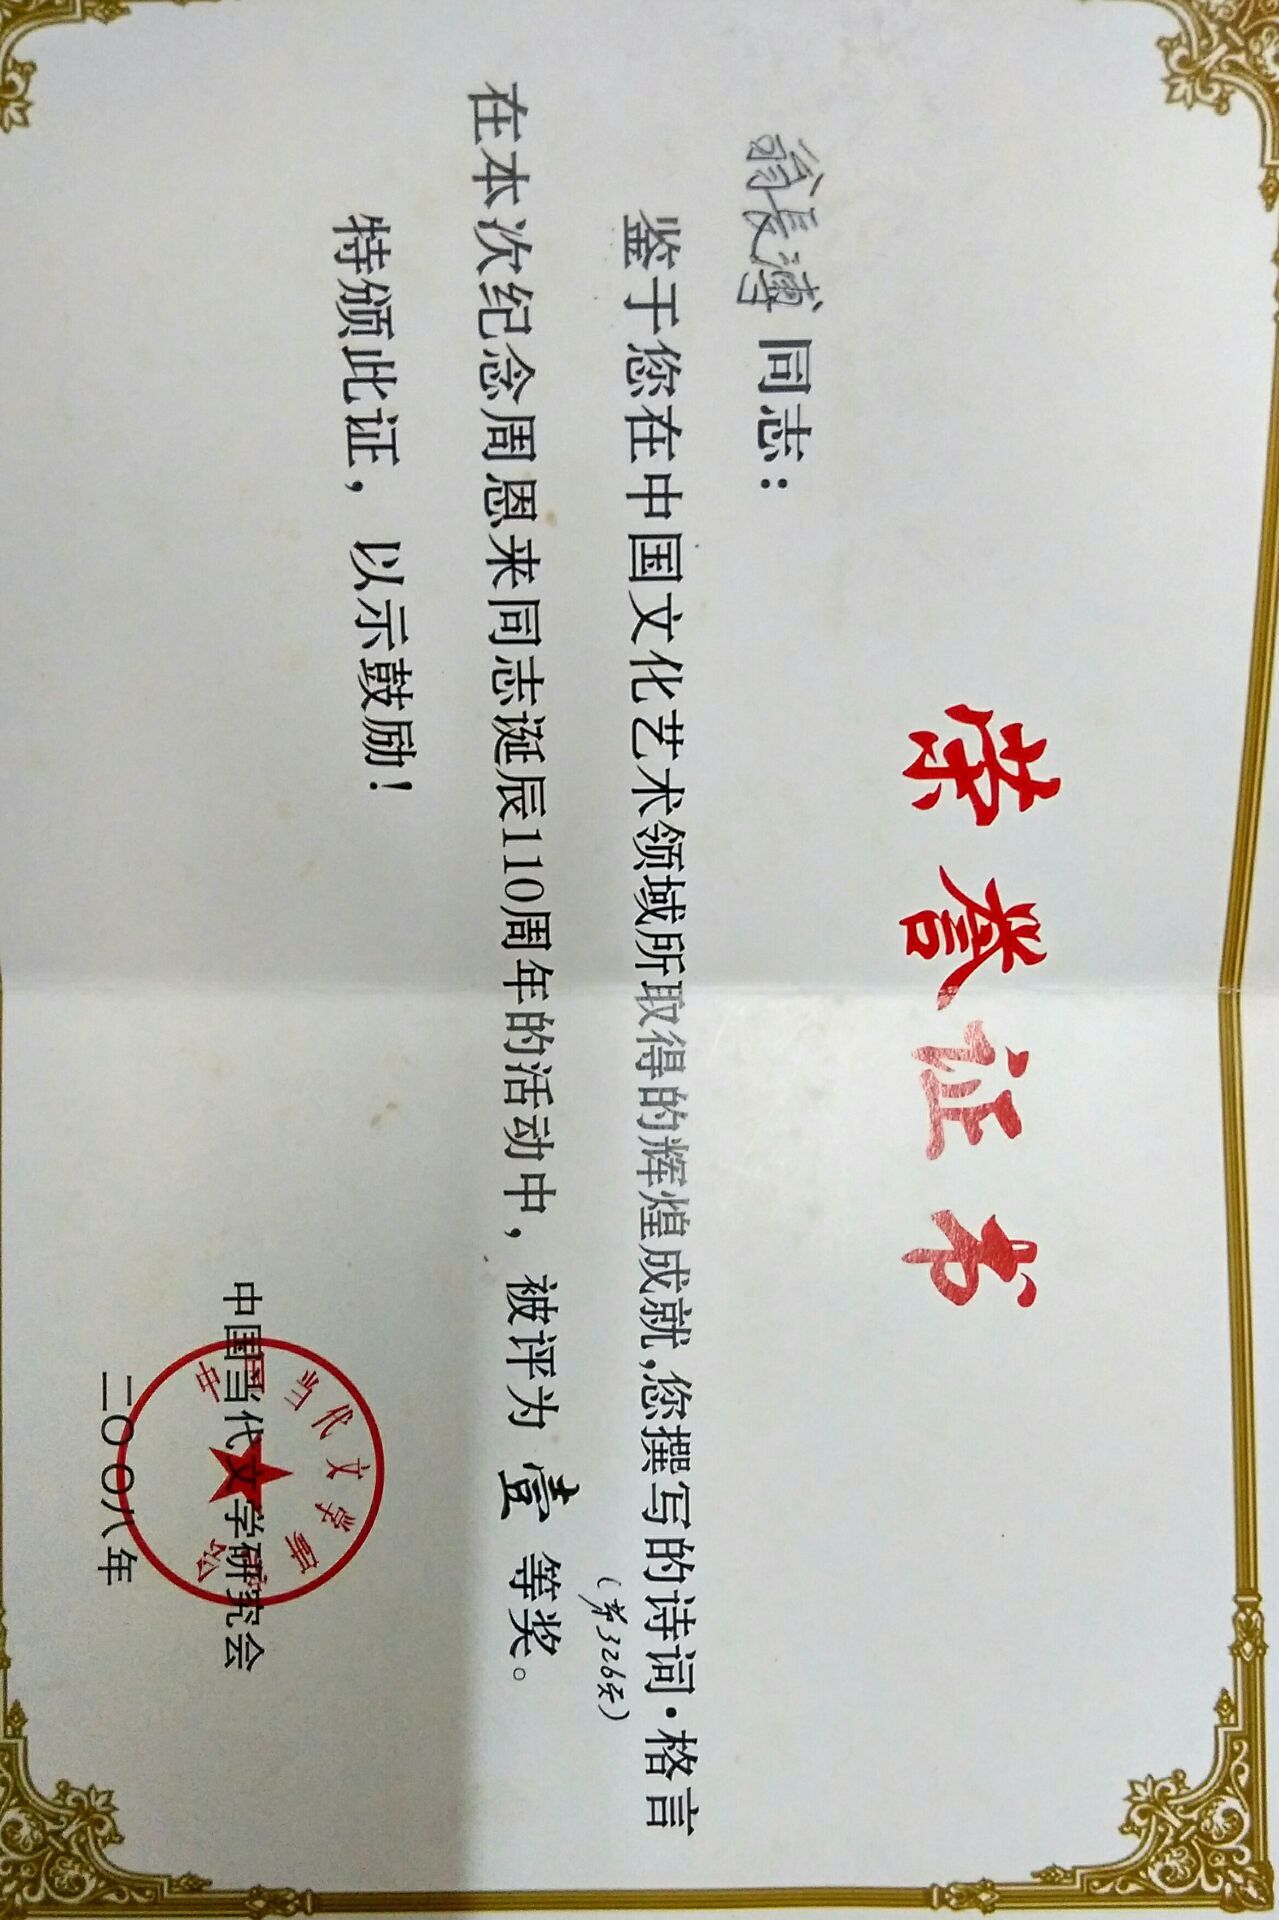 荣誉证书
翁長溥 同志：
鉴于您在中国文化艺术领域所取得的辉煌成就,您撰写的诗词·格言
(第326页)
在本次纪念周恩来同志诞辰110周年的活动中，被评为 壹 等奖。
特颁此证，以示鼓励！
中国当代文学研究会
中国当代文学研究会
二〇〇八年